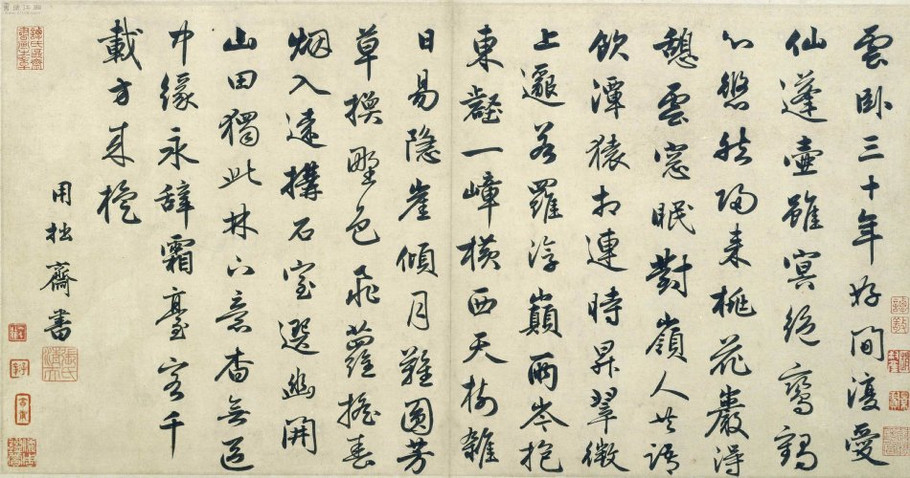 雲臥三十年好閒復愛
仙蓬壺雖冥絕鸞鶴
心悠然歸来桃花巖得
憩雲窓眠對嶺人共語
飲潭猿相連時昇翠微
上邈若羅浮巔兩岑抱
東壑一嶂横西天樹雜
日易隱崖傾月難圓芳
草換野色飛蘿搖春
烟入遠構石室選幽開
山田獨此林下意杳無區
中緣永辭霜臺客千
載方来旋
用拙齋書